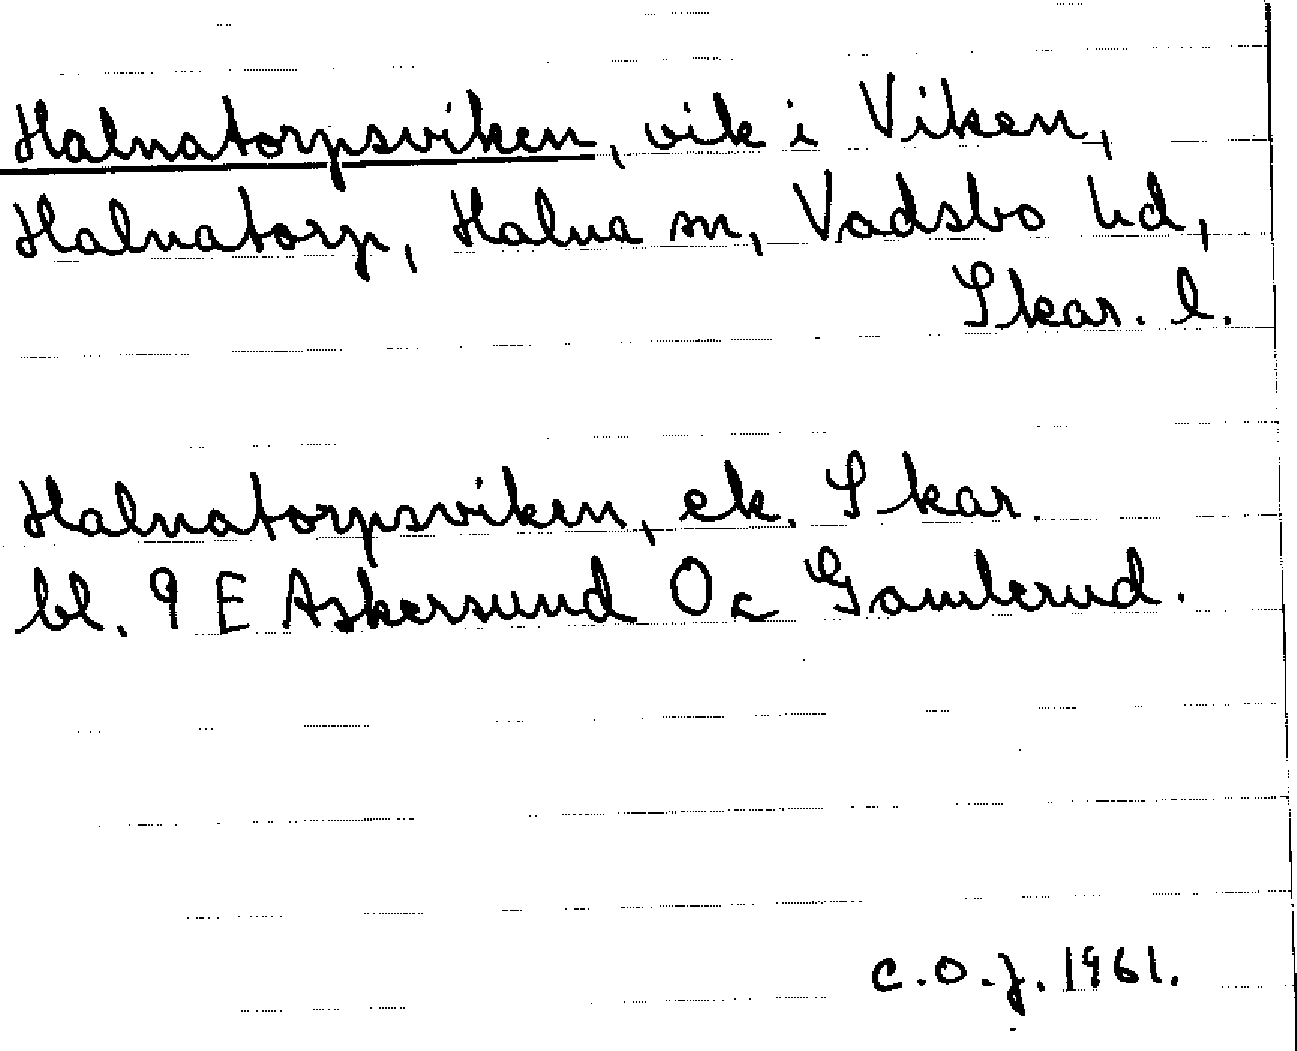 Halnatorpsviken, vik i Viken,
Halnatorp, Halna sn, Vadsbo hd,
Skar. l.
Halnatorpsviken, ek. Skar.
bl. 9 E Askersund O c Gamlerud.
C.O.J. 1961.